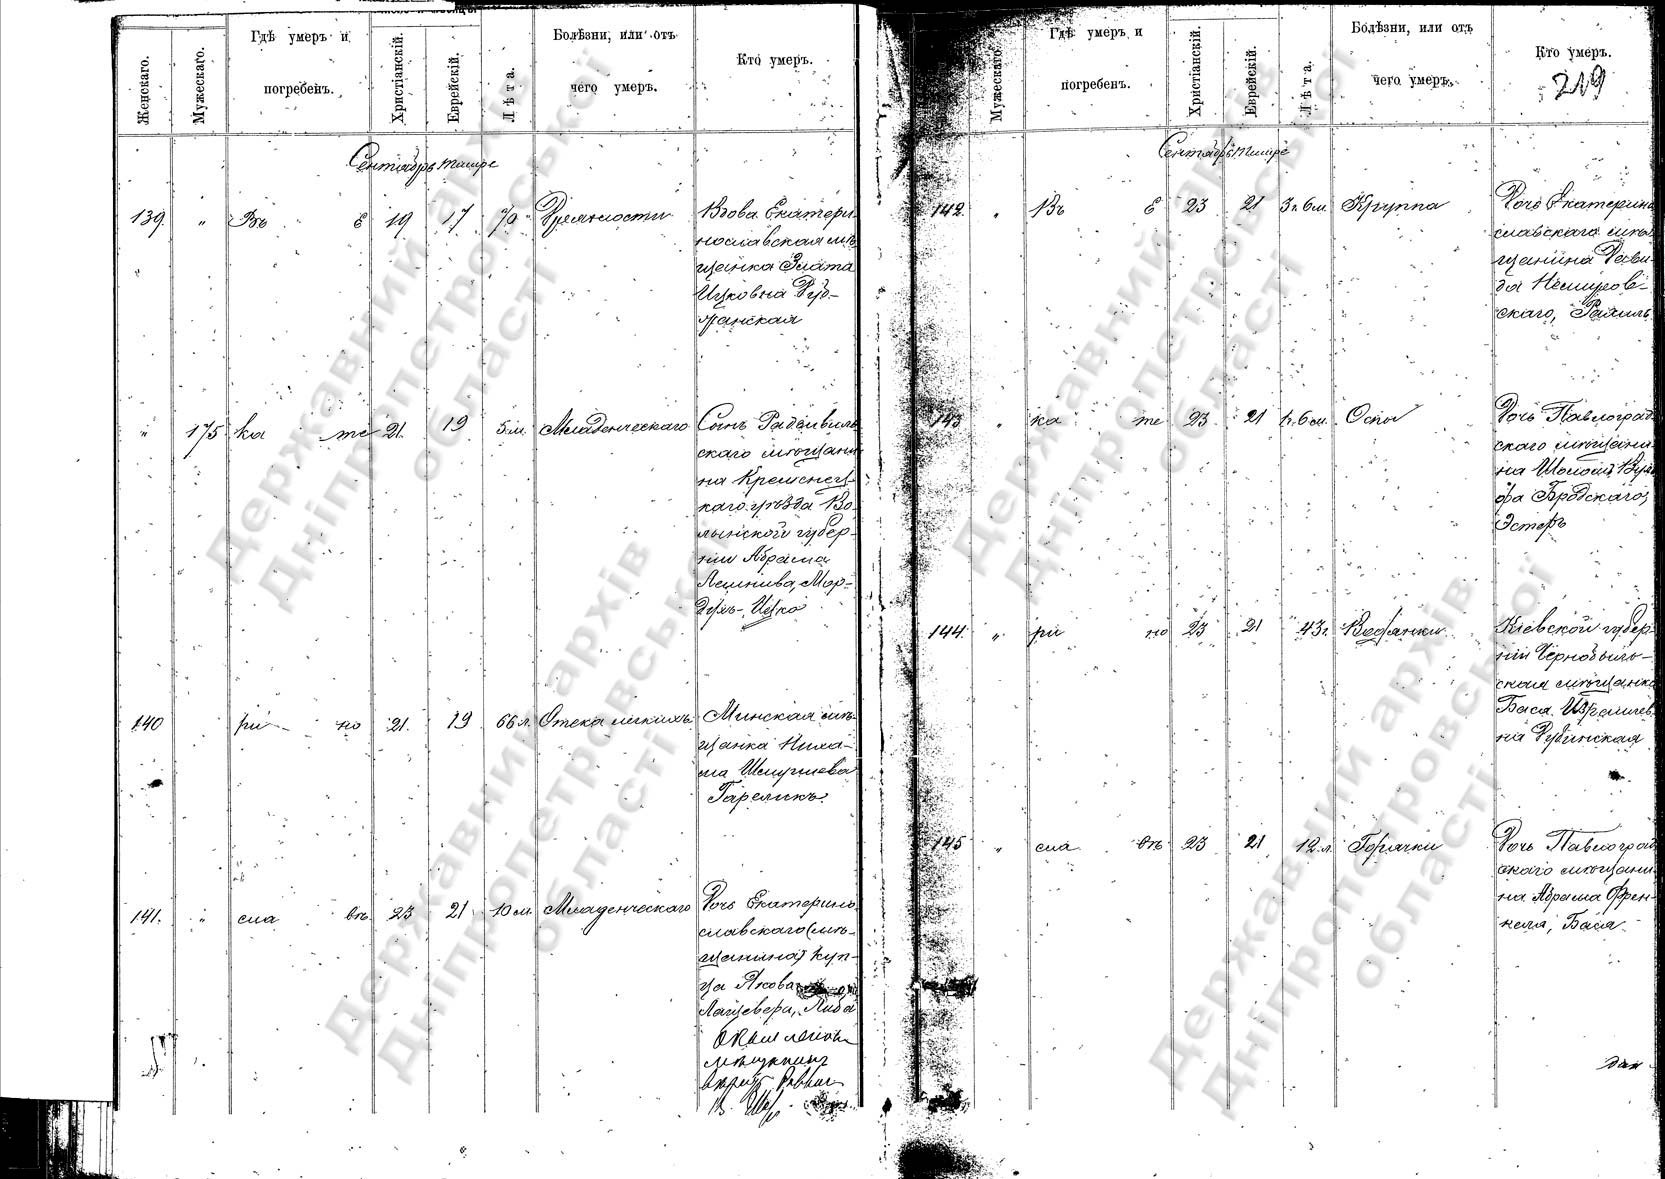 Женскаго.
Мужескаго.
Гдѣ умеръ и
погребенъ.
Христіанскій.
Еврейскій.
Лѣта.
Болѣзни, или отъ
чего умеръ.
Кто умеръ.
Сентябрь тишре
139. " Въ Е 19 17 70 Дряхлости
Вдова Екатери-
нославская мѣ-
щанка Злата
Ицковна Руд-
" 175 ка те 21 19 5 м. Младенческаго
Сынъ Радзивиль
скаго мѣщани
на Кременец-
каго уѣзда Во-
лынской губер-
ніи Абрама
Мор-
духъ-Ицко
140 ри но 21. 19 66 л. Отека легкихъ
Минская мѣ-
щанка Неха-
ма Шмуилева
Гареликъ
141. " сла въ 23 21 10 м. Младенческаго
Дочь Екатерино
славскаго (мѣ-
щанина) куп-
ца Якова
Либа
Мужескаго.
Гдѣ умеръ и
погребенъ.
Христіанскій.
Еврейскій.
Лѣта
Болѣзни, или отъ
чего умеръ.
Кто умеръ.
219
Сентябрь тишре
142. " Въ Е 23 21 3 г. 6 м. Круппа
Дочь Екатерино
славскаго мѣ-
щанина Дави-
да Немиров-
скаго, Рахиль
143 " ка те 23 21 1 г. 6 м. Оспы
Дочь Павлоград
скаго мѣщани-
на Шолома Вуль
фа Бродскаго,
Эстеръ
144. " ри но 23 21 43 г. Водянки
Кіевской губер-
ніи Чернобыль-
ская мѣщанка
Бася Израилев
на Дубинская
145 " сла въ 23 21 12 л. Горячки
Дочь Павлоград
скаго мѣщани
на Абрама Френ-
келя, Бася
Державний архів
Дніпропетровської
області
Державний архів
Дніпропетровської
області
Державний архів
Дніпропетровської
області
Державний архів
Дніпропетровської
області